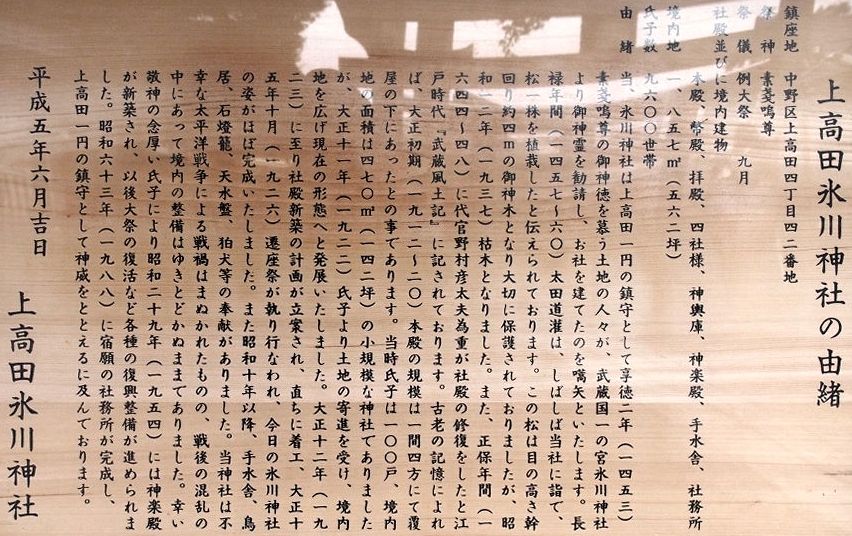 上高田氷川神社の由緒
鎮座地　中野区上高田四丁目四二番地
祭　神　素戔嗚尊
祭　儀　例大祭　九月
社殿並びに境内建物
本殿、幣殿、拝殿、四社様、神輿庫、神楽殿、手水舎、社務所
境内地　一、八五七㎡（五六二坪）
氏子数　九六〇〇世帯
由　緒　当、氷川神社は上高田一円の鎮守として享徳二年（一四五三）
素戔嗚尊の御神徳を慕う土地の人々が、武蔵国一の宮氷川神社
より御神霊を勧請し、お社を建てたのを嚆矢といたします。長
禄年間（一四五七〜六〇）太田道灌は、しばしば当社に詣で、
松一株を植栽したと伝えられております。この松は目の高さ幹
回り約四ｍの御神木となり大切に保護されておりましたが、昭
和一二年（一九三七）枯木となりました。また、正保年間（一
六四四〜四八）に代官野村彦太夫為重が社殿の修復をしたと江
戸時代『武蔵風土記』に記されております。古老の記憶によれ
ば、大正初期（一九一二〜二〇）本殿の規模は一間四方にて覆
屋の下にあったとの事であります。当時氏子は一〇〇戸、境内
地の面積は四七〇㎡（一四二坪）の小規模な神社でありました
が、大正十一年（一九二二）氏子より土地の寄進を受け、境内
地を広げ現在の形態へと発展いたしました。大正十二年（一九
二三）に至り社殿新築の計画が立案され、直ちに着工、大正十
五年十月（一九二六）遷座祭が執り行なわれ、今日の氷川神社
の姿がほぼ完成いたしました。また昭和十年以降、手水舎、鳥
居、石燈籠、天水盤、狛犬等の奉献がありました。当神社は不
幸な太平洋戦争による戦禍はまぬかれたものの、戦後の混乱の
中にあって境内の整備はゆきとどかぬままでありました。幸い
敬神の念厚い氏子により昭和二十九年（一九五四）には神楽殿
が新築され、以後大祭の復活など各種の復興整備が進められま
した。昭和六十三年（一九八八）に宿願の社務所が完成し、
上高田一円の鎮守として神威をととえるに及んでおります。
平成五年六月吉日
上高田氷川神社